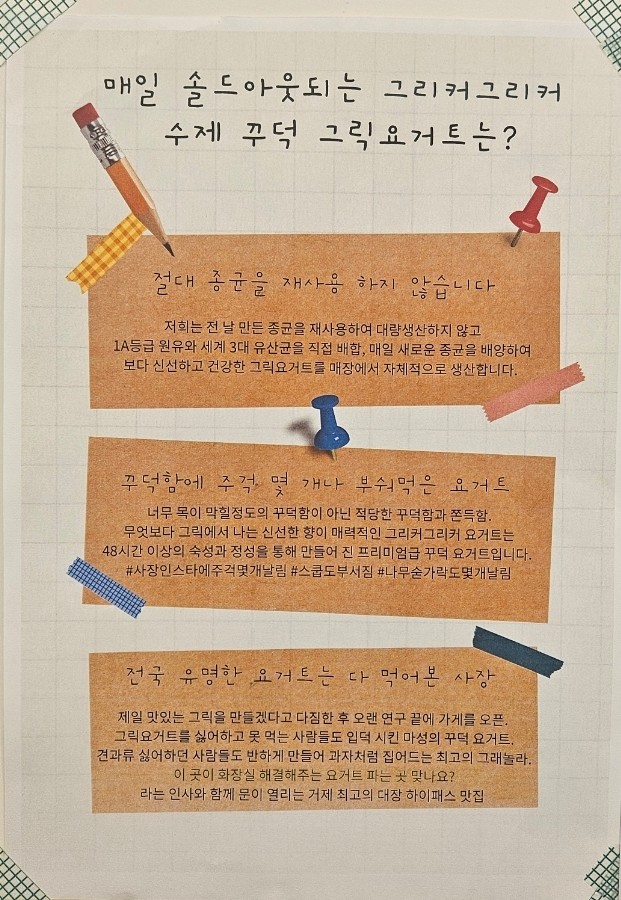 매일 솔드아웃되는 그리커그리커
수제 꾸덕 그릭요거트는?
절대 종균을 재사용 하지 않습니다
저희는 전 날 만든 종균을 재사용하여 대량생산하지 않고
1A등급 원유와 세계 3대 유산균을 직접 배합, 매일 새로운 종균을 배양하여
보다 신선하고 건강한 그릭요거트를 매장에서 자체적으로 생산합니다.
꾸덕함에 주걱 몇 개나 부숴먹은 요거트
너무 목이 막힐정도의 꾸덕함이 아닌 적당한 꾸덕함과 쫀득함.
무엇보다 그릭에서 나는 신선한 향이 매력적인 그리커그리커 요거트는
48시간 이상의 숙성과 정성을 통해 만들어 진 프리미엄급 꾸덕 요거트입니다.
#사장인스타에주걱몇개날림 #스쿱도부서짐 #나무숟가락도몇개날림
전국 유명한 요거트는 다 먹어본 사장
제일 맛있는 그릭을 만들겠다고 다짐한 후 오랜 연구 끝에 가게를 오픈.
그릭요거트를 싫어하고 못 먹는 사람들도 입덕 시킨 마성의 꾸덕 요거트.
견과류 싫어하던 사람들도 반하게 만들어 과자처럼 집어드는 최고의 그래놀라.
이 곳이 화장실 해결해주는 요거트 파는 곳 맞나요?
라는 인사와 함께 문이 열리는 거제 최고의 대장 하이패스 맛집